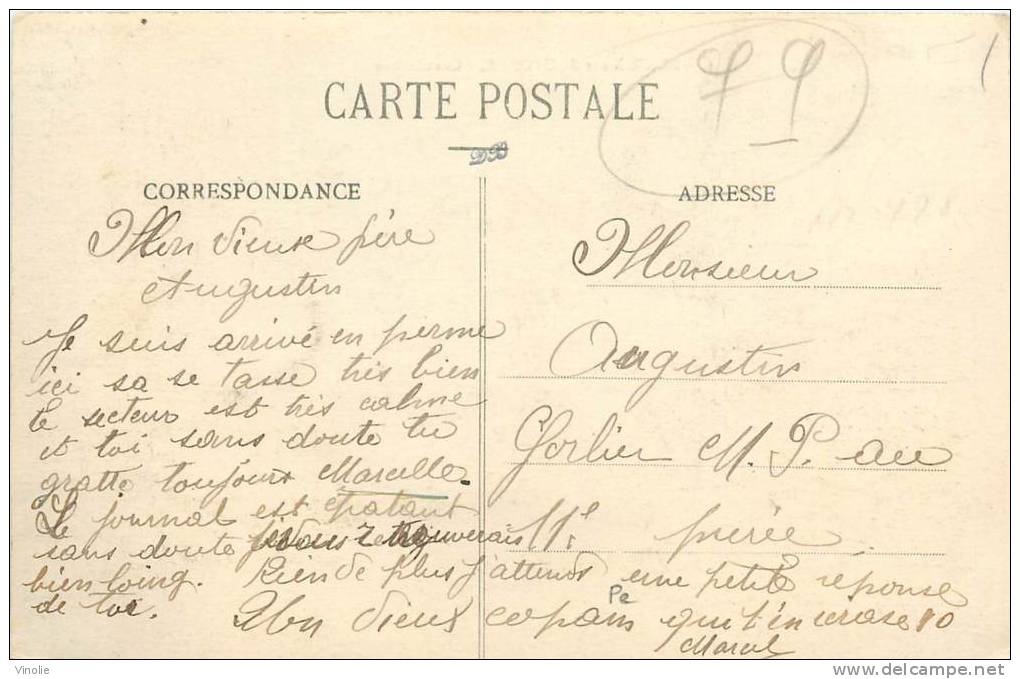 99
CARTE POSTALE
DB
CORRESPONDANCE
Mon vieux père
Augustin
Je suis arrivé en perme
ici sa se tasse très bien
le secteur est très calme
et toi sans doute tu
gratte toujours Marcelle.
Le journal est épatant
sans doute
bien loing.
de toi.
Rien de plus j'attends une petite reponse
Mon vieux copain qui t'en 10
Pe
Marcel
ADRESSE
Monsieur
Augustin
Gorlier M. P. au
11e
Vinolie
www.delcampe.net